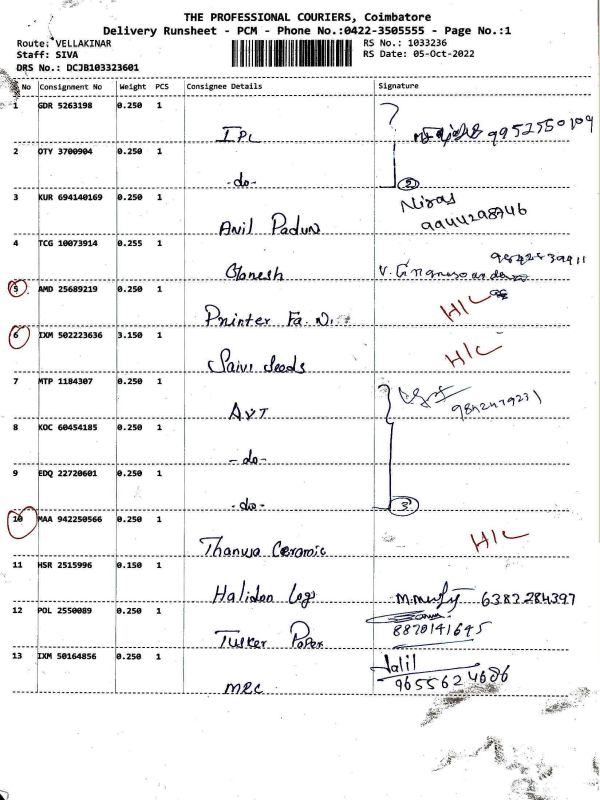 THE PROFESSIONAL COURIERS, Coimbatore
Delivery Runsheet - PCM - Phone No.:0422-3505555 - Page No.:1
Route: VELLAKINAR RS No.: 1033236
Staff: SIVA RS Date: 05-Oct-2022
DRS No.: DCJB103323601
No Consignment No Weight PCS Consignee Details Signature
1 GDR 5263198 0.250 1
IPL 9952550109
2 OTY 3700904 0.250 1
-do- 2
3 KUR 694140169 0.250 1 Niras
Anil Padun 9944298746
4 TCG 10073914 0.255 1
Ganesh
5 AMD 25689219 0.250 1 H/C
Printer Fa. N.
6 IXM 502223636 3.150 1 H/C
Saivi Seeds
7 MTP 1184307 0.250 1
AVT
8 KOC 60454185 0.250 1
-do-
9 EDQ 22720601 0.250 1
-do- 3
10 MAA 942250566 0.250 1
Thanwa Ceramic H/C
11 HSR 2515996 0.150 1
Halidon Logs 6382284397
12 POL 2550089 0.250 1
Tusker Paper 8870141645
13 IXM 50164856 0.250 1 Jalil
MRC 9655624686